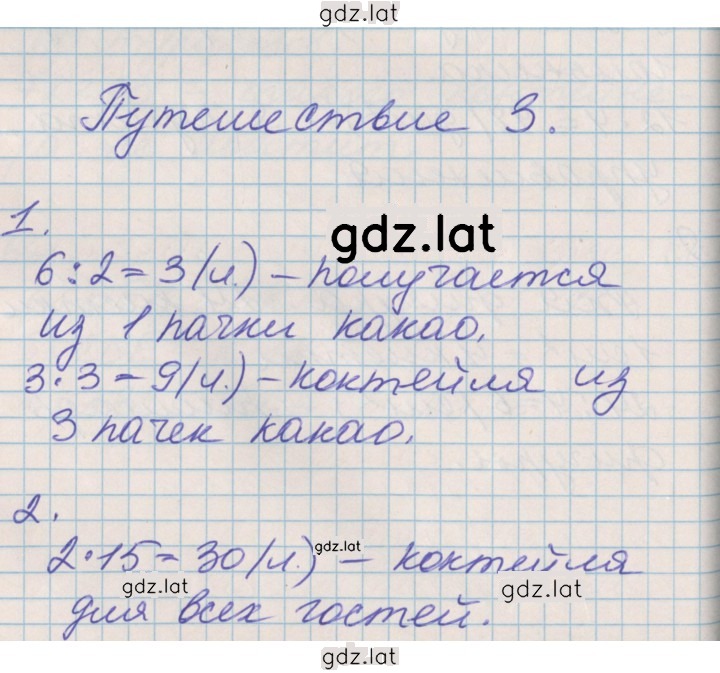 gdz.lat
Путешествие 3.
1.
gdz.lat
6:2=3(л.) – получается
из 1 пачки какао.
3·3=9(л.) – коктейля из
3 пачек какао.
2.
gdz.lat
2·15=30(л.) – коктейля
gdz.lat
gdz.lat
для всех гостей.
gdz.lat